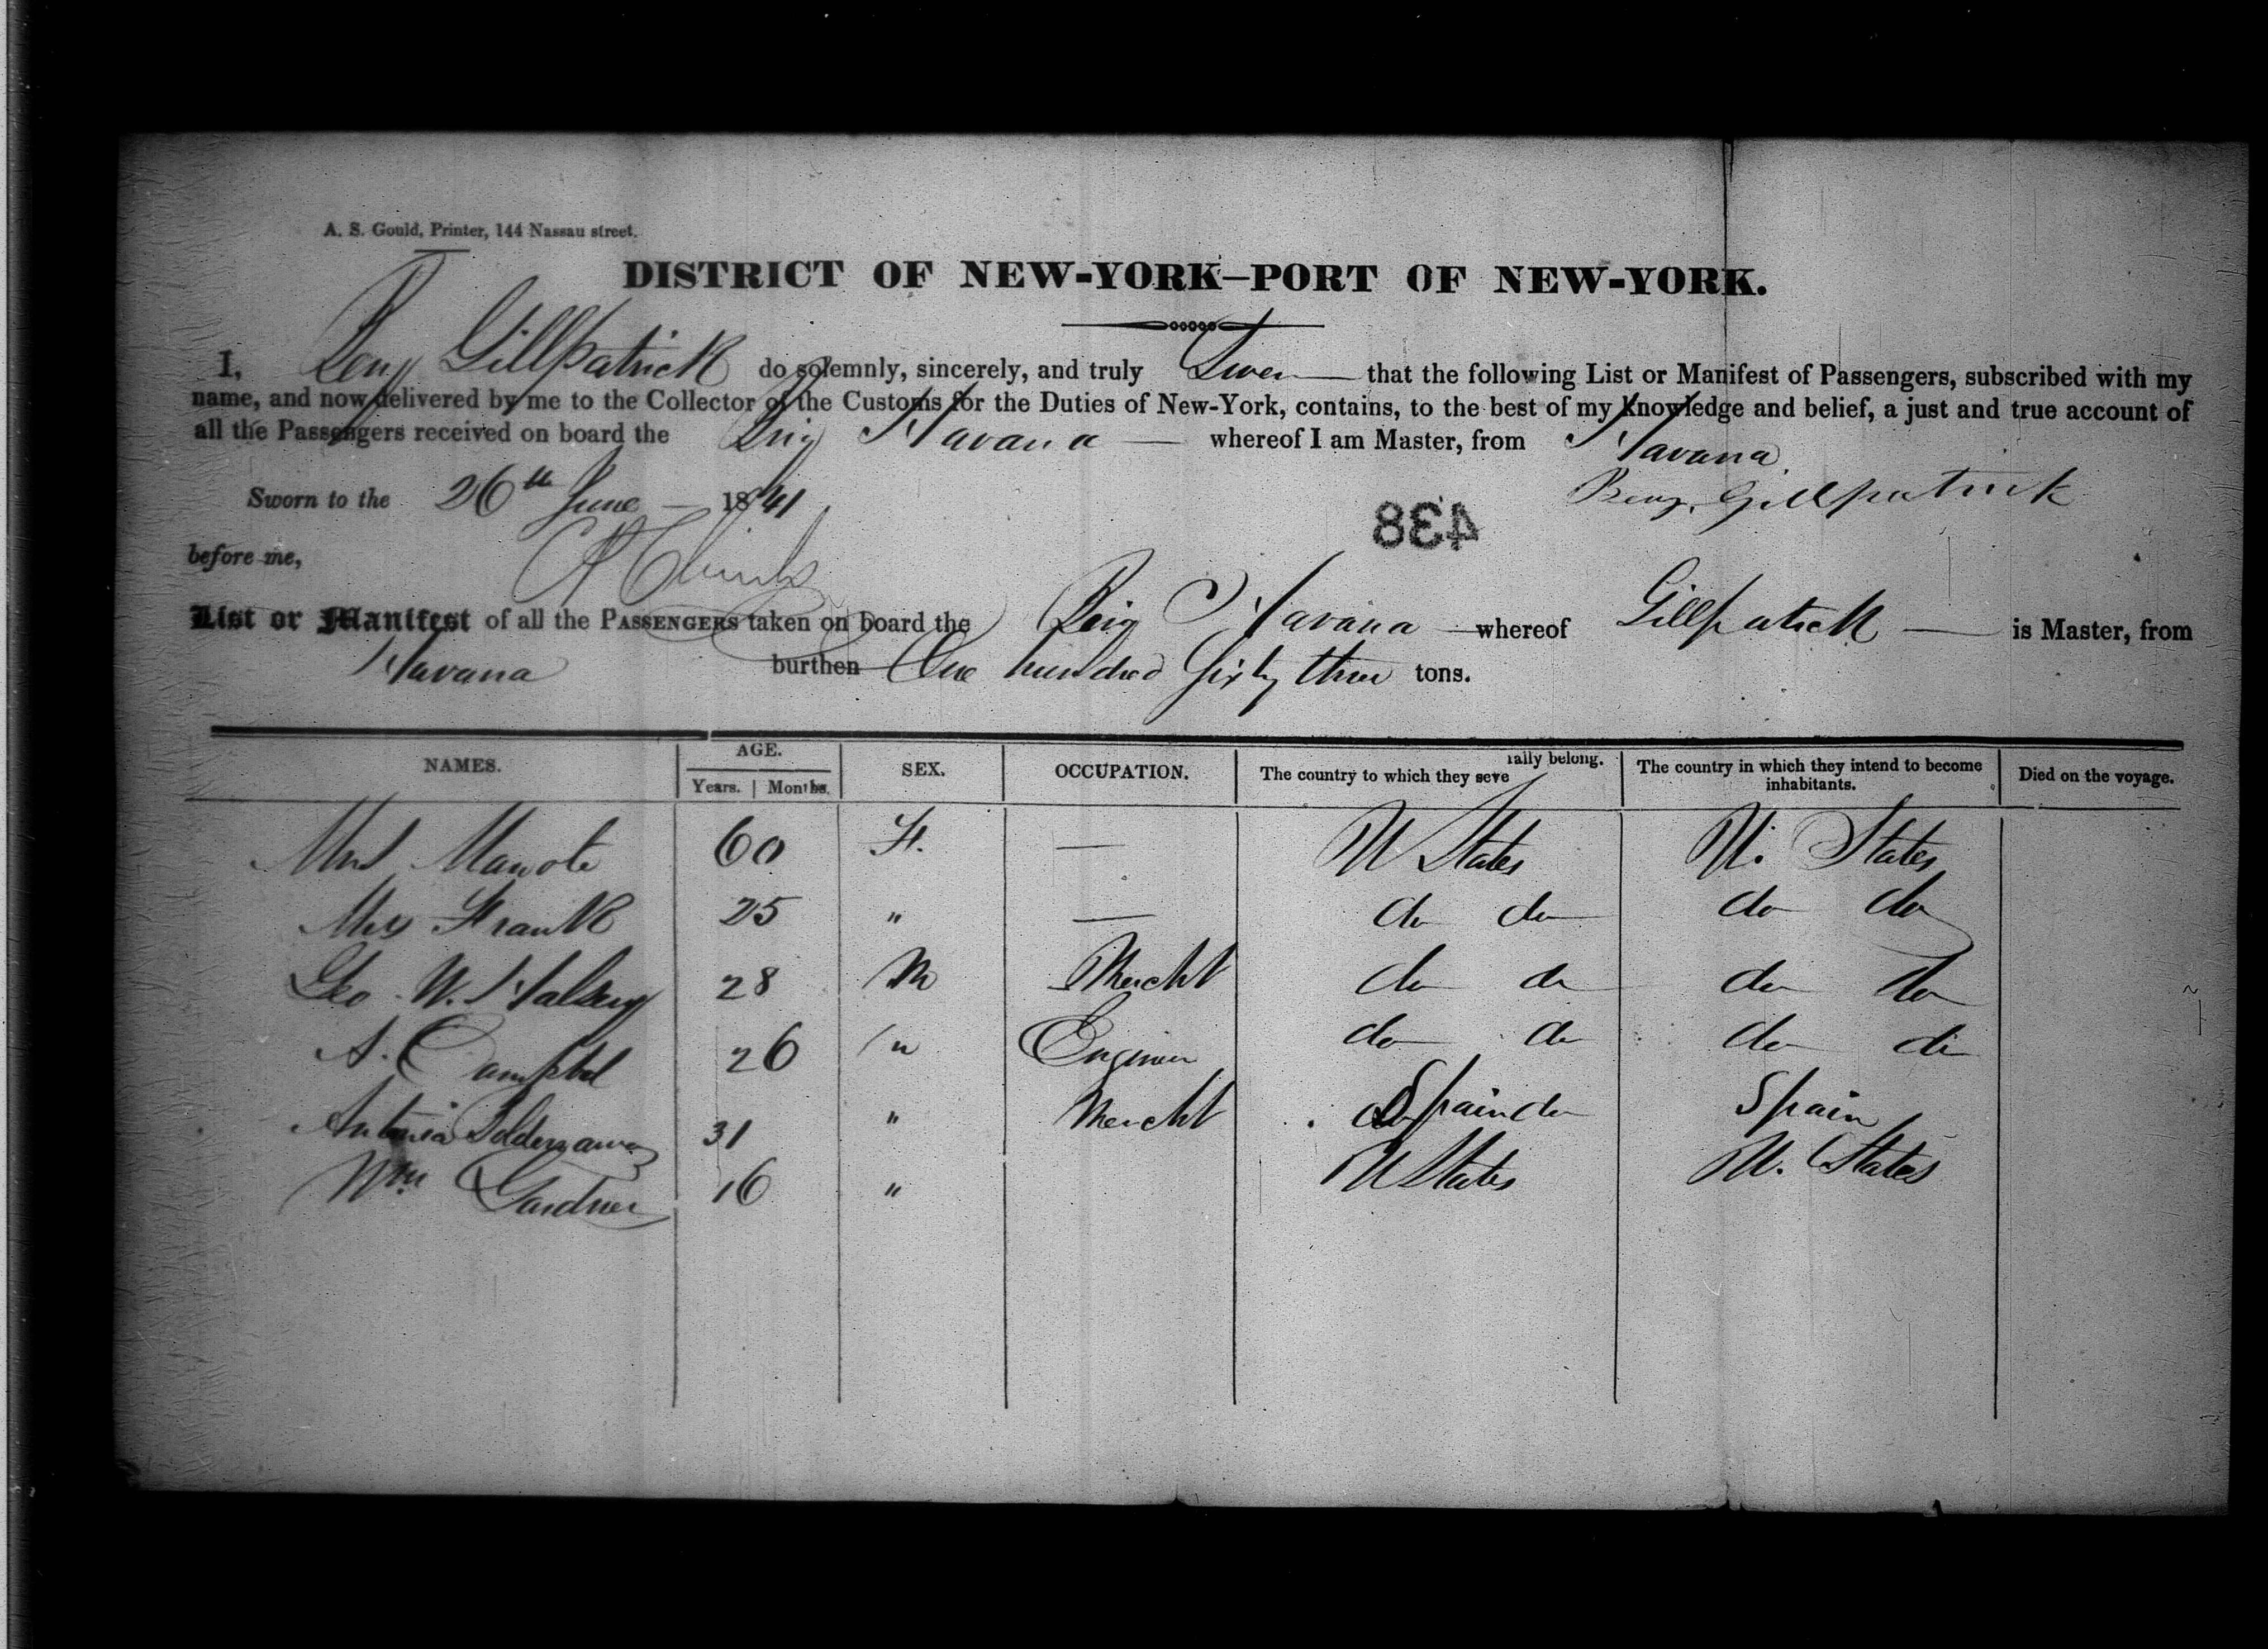 A. S. Gould, Printer, 144 Nassau street.
DISTRICT OF NEW-YORK—PORT OF NEW-YORK.
I, Benj Gillpatrick do solemnly, sincerely, and truly Swear that the following List or Manifest of Passengers, subscribed with my
name, and now delivered by me to the Collector of the Customs for the Duties of New-York, contains, to the best of my knowledge and belief, a just and true account of
all the Passengers received on board the Brig Havana — whereof I am Master, from Havana
Sworn to the 26th June — 1841 Benj. Gillpatrick
438
before me,
List or Manifest of all the PASSENGERS taken on board the Brig Havana whereof Gillpatrick — is Master, from
Havana burthen One hundred Sixty three tons.
NAMES. AGE. SEX. OCCUPATION. The country to which they seve rally belong. The country in which they intend to become inhabitants. Died on the voyage.
Years. Months.
Mrs 60 F. — U States U. States
Mrs Frank 25 " — do do do do
Geo. W. Halsey 28 M Mercht do do do do
A. Campbel 26 " Engineer do do do do
Antonia 31 " Mercht Spain do Spain
Wm Gardner 16 " U States U. States